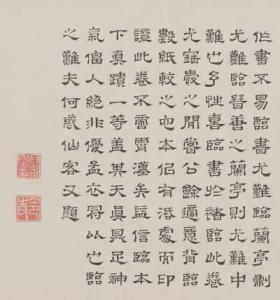 作書不易臨書尤難臨
尤難臨晉書之蘭亭則尤難中
難也予性喜臨書於諸臨此卷
尤寤寐之閒當公餘適意背臨
數紙較之心本侶有添處而印
證此卷不啻霄壤矣益信臨本
下真蹟一等蓋其天真具足神
氣偕人絕非優孟衣冠得以也臨
之難夫何惑仙客又題